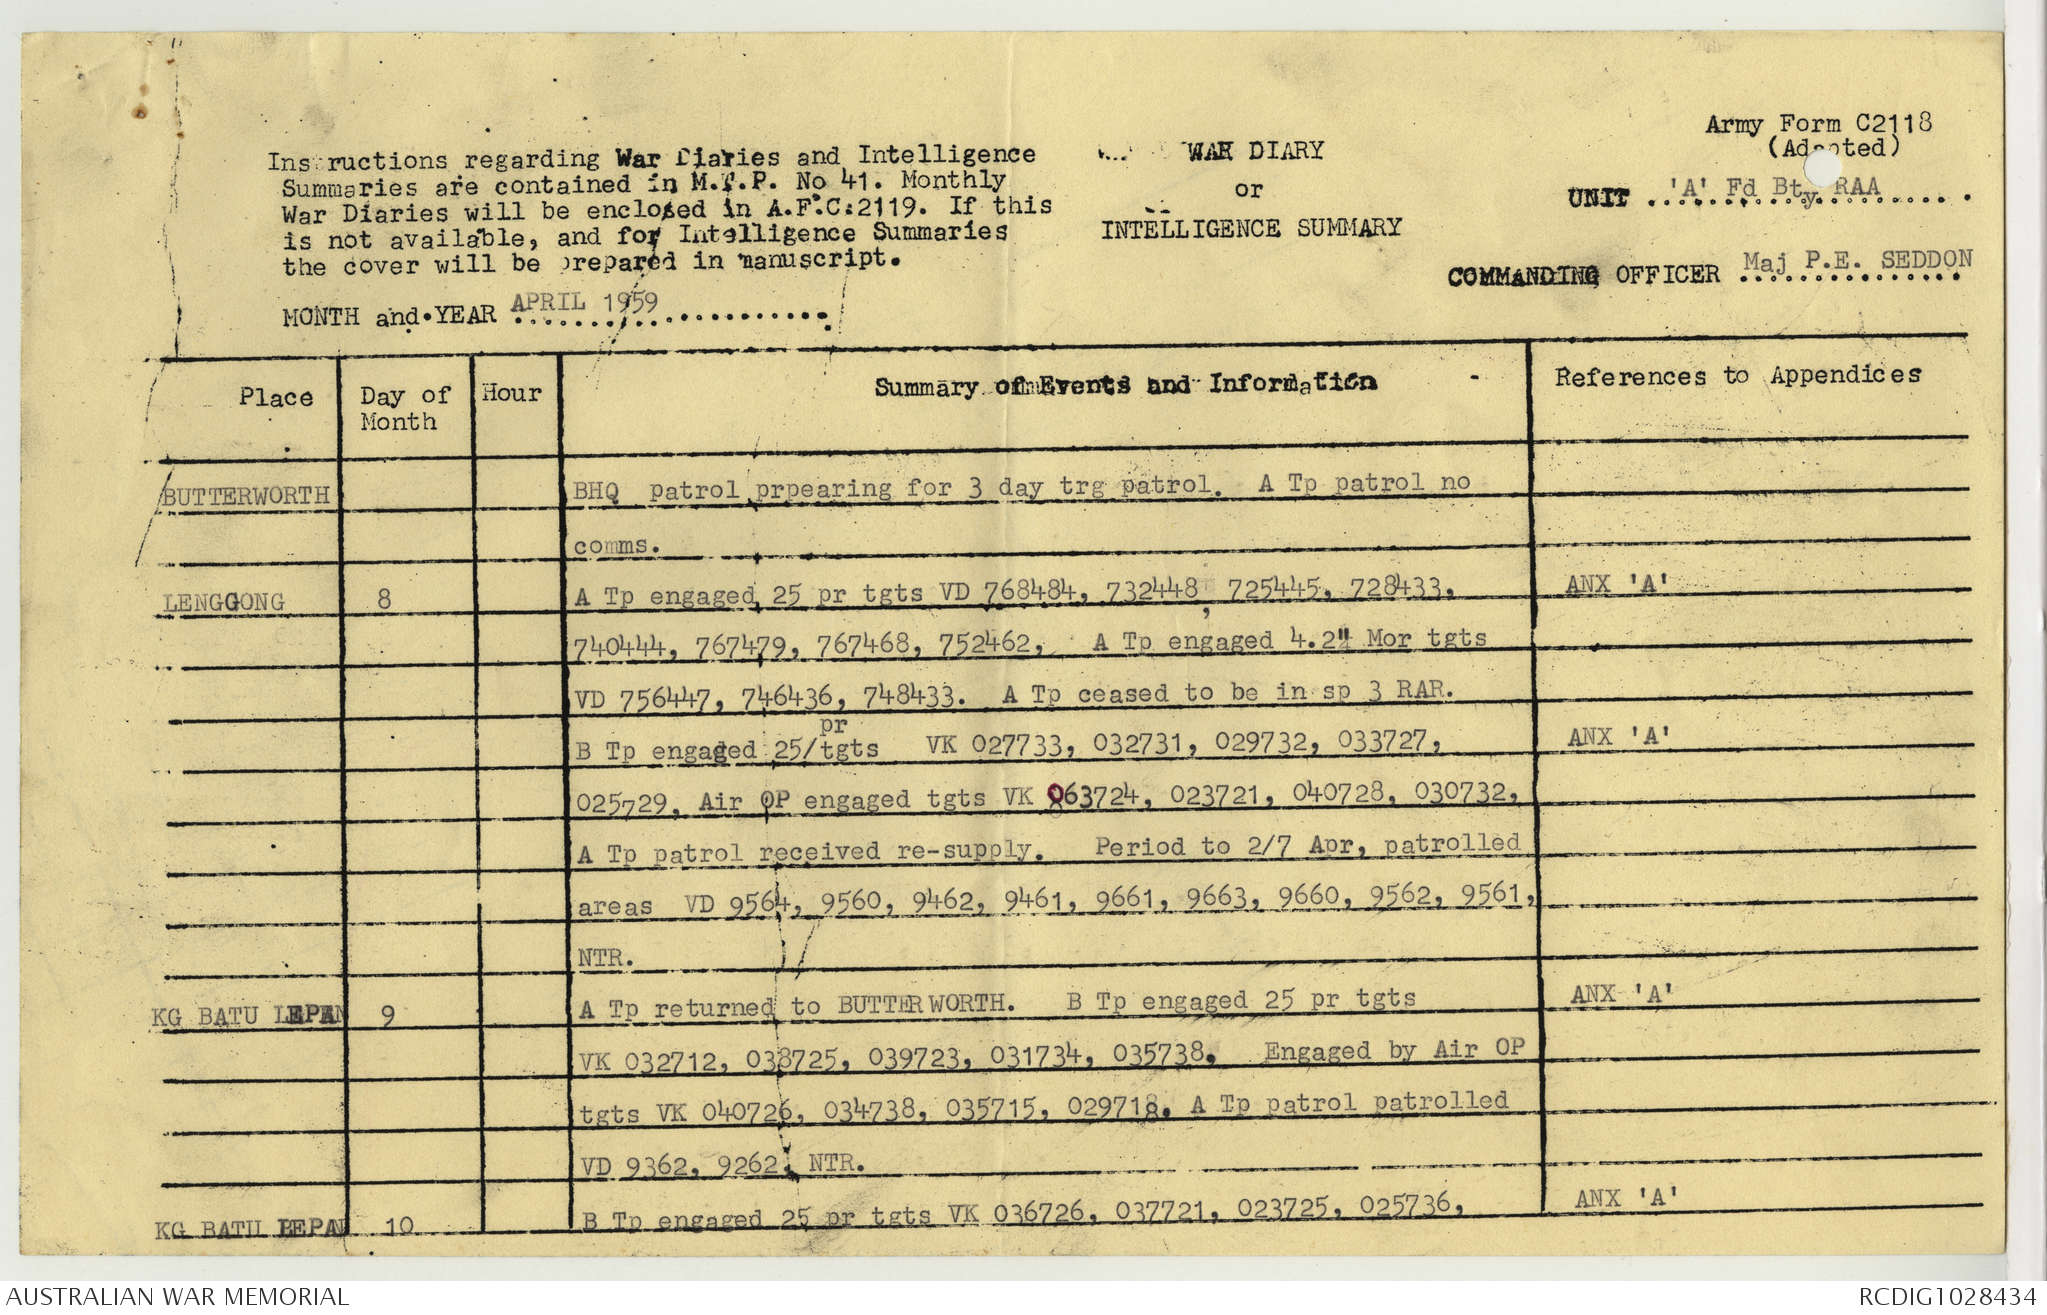 Army Form C2118
(Adapted)
Instructions regarding War Diaries and Intelligence
Summaries are contained in M.T.P. No 41. Monthly
War Diaries will be enclosed in A.F.C.2119. If this
is not available, and for Intelligence Summaries
the cover will be prepared in manuscript.
MONTH and YEAR APRIL 1959
WAR DIARY
or
INTELLIGENCE SUMMARY
UNIT 'A' Fd Bty RAA
COMMANDING OFFICER Maj P.E. SEDDON
Place Day of Month Hour Summary of Events and Information References to Appendices
BUTTERWORTH BHQ patrol prpearing for 3 day trg patrol. A Tp patrol no
comms.
LENGGONG 8 A Tp engaged 25 pr tgts VD 768484, 732448, 725445, 728433, ANX 'A'
740444, 767479, 767468, 752462, A Tp engaged 4.2" Mor tgts
VD 756447, 746436, 748433. A Tp ceased to be in sp 3 RAR.
B Tp engaged 25/pr tgts VK 027733, 032731, 029732, 033727, ANX 'A'
025729, Air OP engaged tgts VK 063724, 023721, 040728, 030732,
A Tp patrol received re-supply. Period to 2/7 Apr, patrolled
areas VD 9564, 9560, 9462, 9461, 9661, 9663, 9660, 9562, 9561,
NTR.
KG BATU 9 A Tp returned to BUTTERWORTH. B Tp engaged 25 pr tgts ANX 'A'
VK 032712, 038725, 039723, 031734, 035738. Engaged by Air OP
tgts VK 040726, 034738, 035715, 029718. A Tp patrol patrolled
VD 9362, 9262. NTR.
KG BATU 10 B Tp engaged 25 pr tgts VK 036726, 037721, 023725, 025736, ANX 'A'
AUSTRALIAN WAR MEMORIAL RCDIG1028434